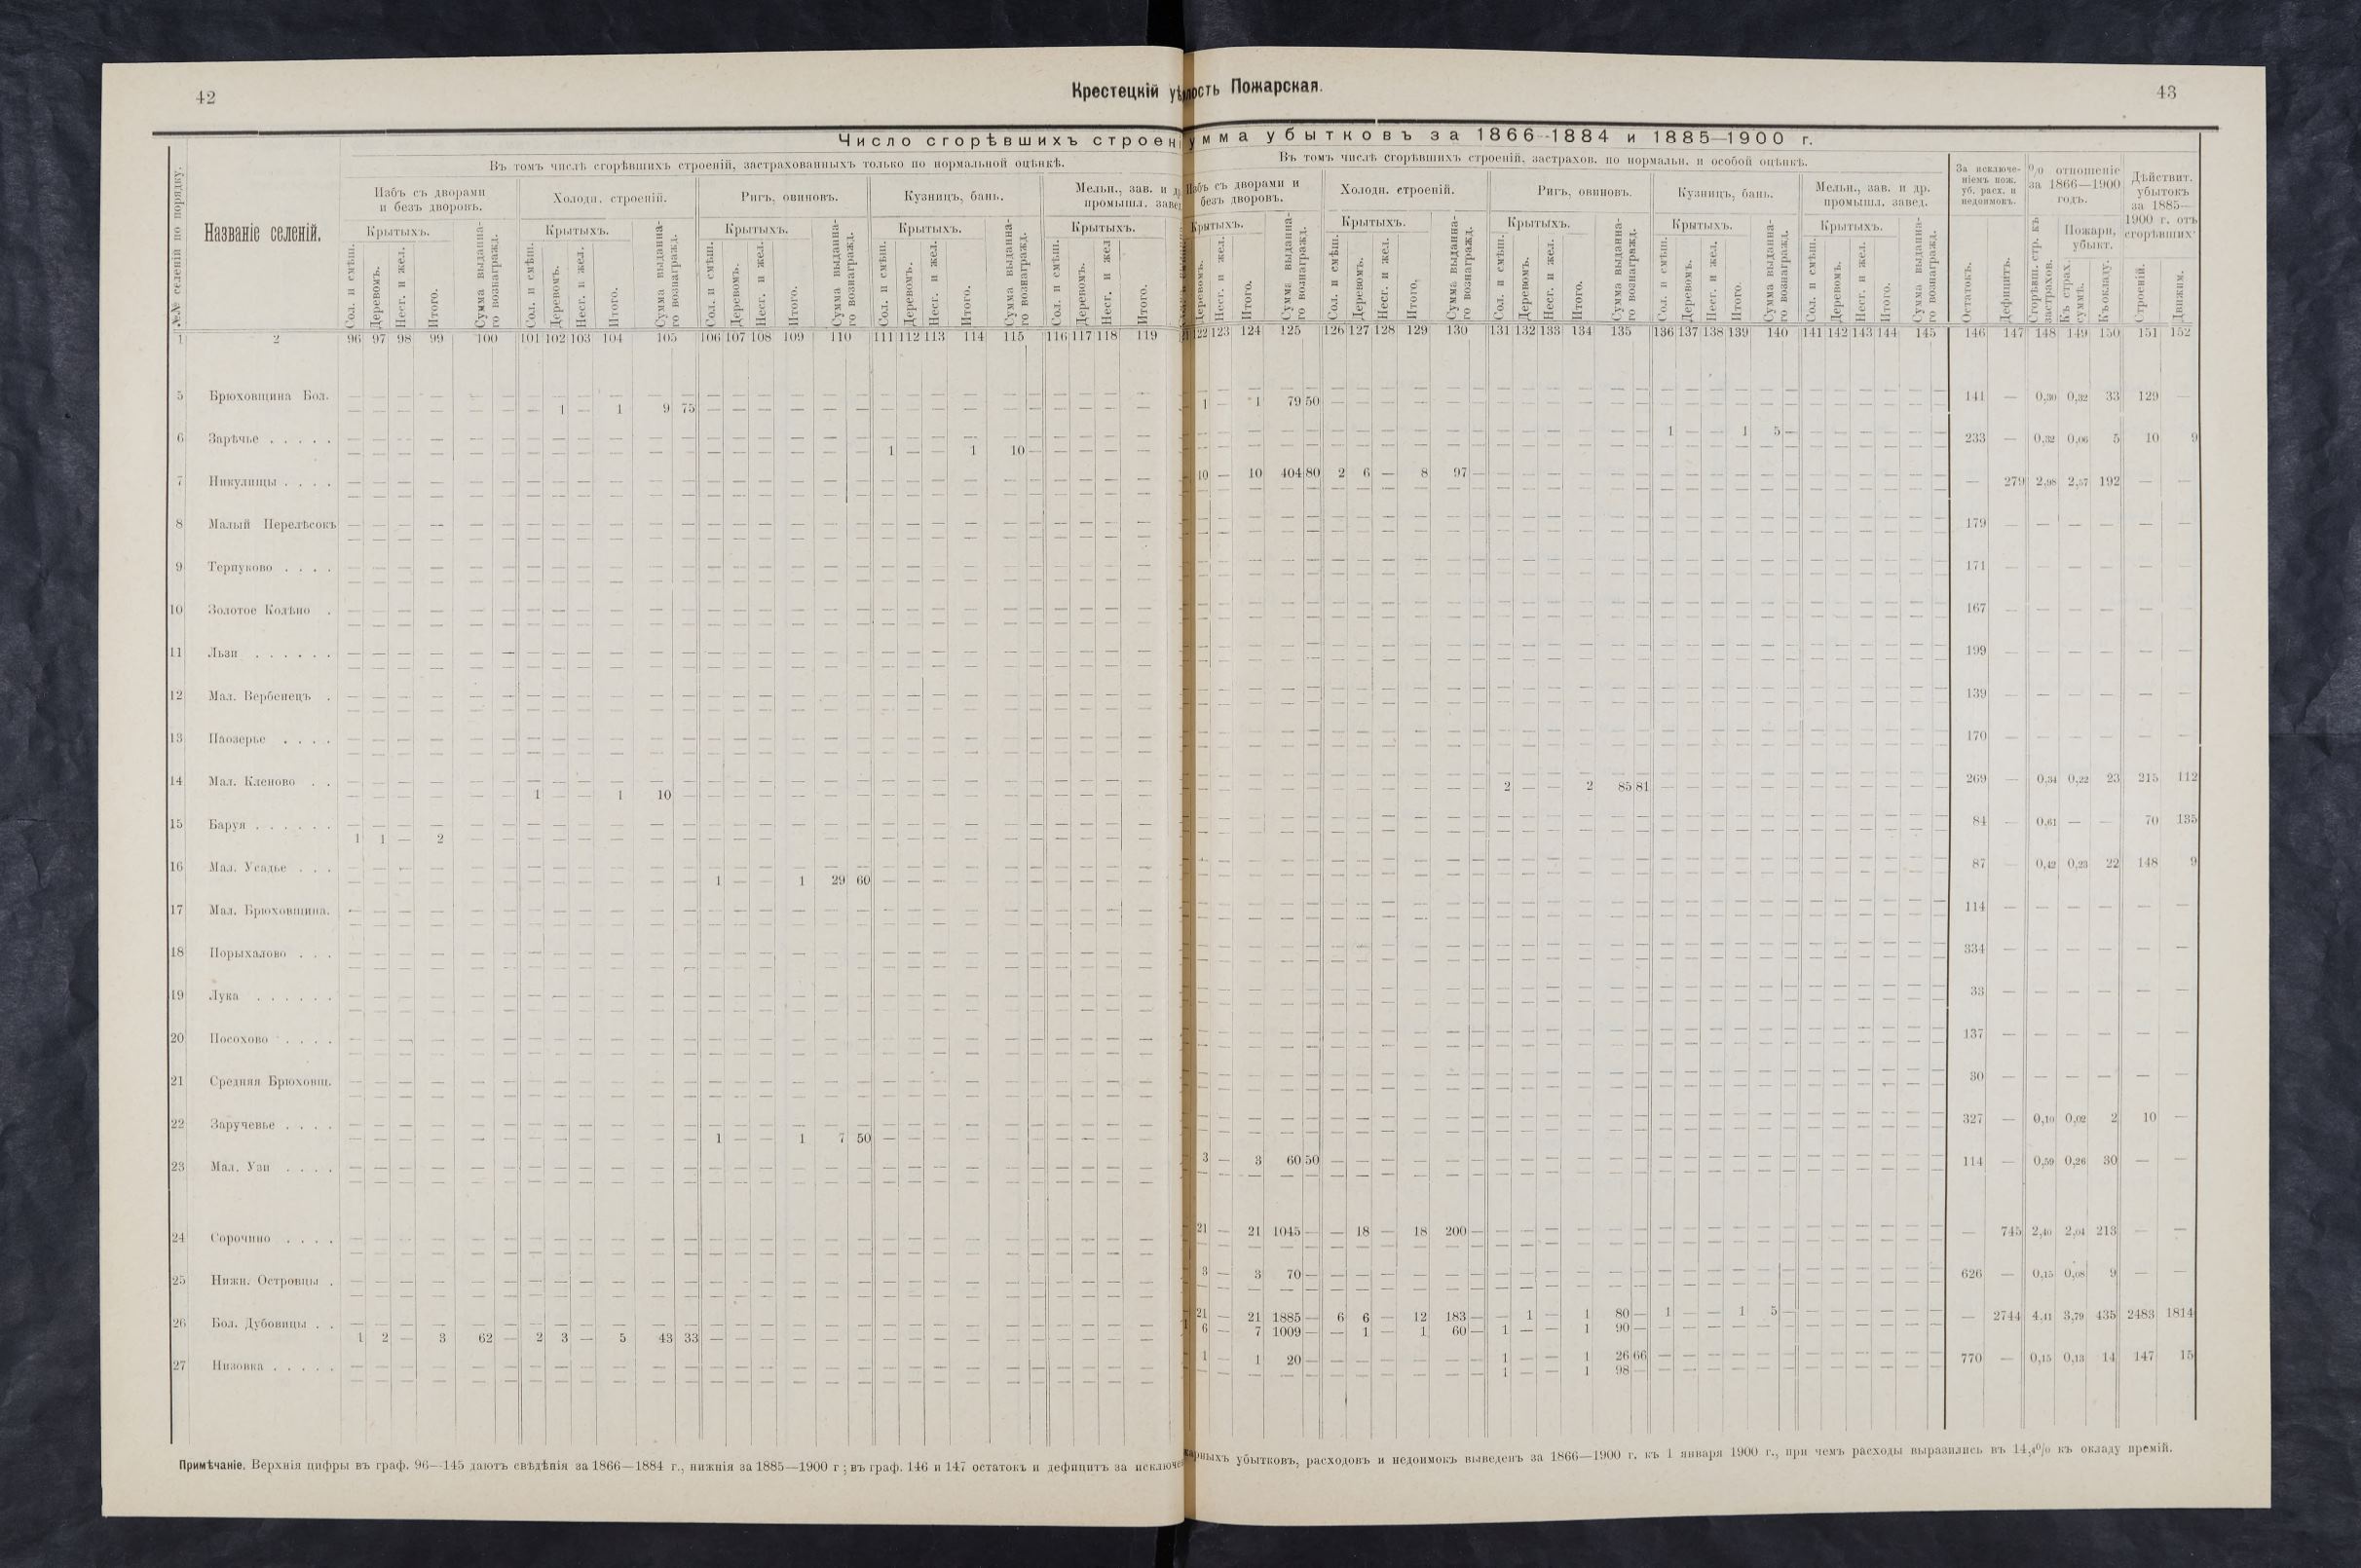 42
Крестецкій уѣ
лость Пожарская.
43
Число сгорѣвшихъ строен
умма убытковъ за 1866–1884 и 1885—1900 г.
№№ селеній по порядку.
Названіе селеній.
Въ томъ числѣ сгорѣвшихъ строеній, застрахованныхъ только по нормальной оцѣнкѣ.
Въ томъ числѣ сгорѣвшихъ строеній, застрахов. по нормальн. и особой оцѣнкѣ.
Избъ съ дворами и безъ дворовъ. Холодн. строеній. Ригъ, овиновъ. Кузницъ, бань. Мельн., зав. и др. промышл. завед.
Избъ съ дворами и безъ дворовъ. Холодн. строеній. Ригъ, овиновъ. Кузницъ, бань. Мельн., зав. и др. промышл. завед.
За исключеніемъ пож. уб. расх. и недоимокъ.
% отношеніе за 1866—1900 годъ.
Дѣйствит. убытокъ за 1885—1900 г. отъ сгорѣвшихъ
Крытыхъ. Крытыхъ. Крытыхъ. Крытыхъ. Крытыхъ.
Крытыхъ. Крытыхъ. Крытыхъ. Крытыхъ. Крытыхъ.
Пожарн. убыт.
Сол. и смѣш. Деревомъ. Несг. и жел. Итого. Сумма выданнаго вознагражд.
Сол. и смѣш. Деревомъ. Несг. и жел. Итого. Сумма выданнаго вознагражд.
Сол. и смѣш. Деревомъ. Несг. и жел. Итого. Сумма выданнаго вознагражд.
Сол. и смѣш. Деревомъ. Несг. и жел. Итого. Сумма выданнаго вознагражд.
Сол. и смѣш. Деревомъ. Несг. и жел Итого.
Деревомъ. Несг. и жел. Итого. Сумма выданнаго вознагражд.
Сол. и смѣш. Деревомъ. Несг. и жел. Итого. Сумма выданнаго вознагражд.
Сол. и смѣш. Деревомъ. Несг. и жел. Итого. Сумма выданнаго вознагражд.
Сол. и смѣш. Деревомъ. Несг. и жел. Итого. Сумма выданнаго вознагражд.
Сол. и смѣш. Деревомъ. Несг. и жел. Итого. Сумма выданнаго вознагражд.
Остатокъ. Дефицитъ. Сгорѣвш. стр. къ застрахов. Къ страх. суммѣ. Къ окладу. Строеній. Движим.
1 2 96 97 98 99 100 101 102 103 104 105 106 107 108 109 110 111 112 113 114 115 116 117 118 119
122 123 124 125 126 127 128 129 130 131 132 133 134 135 136 137 138 139 140 141 142 143 144 145 146 147 148 149 150 151 152
5 Брюховщина Бол. — 141 — 0,30 0,32 33 129 —
— 1 — 1 9 75 — 1 — 1 79 50 —
6 Зарѣчье . . . . . — 1 — — 1 5 — 233 — 0,32 0,06 5 10 9
— 1 — — 1 10 —
7 Никулицы . . . . — 10 — 10 404 80 2 6 — 8 97 — — 279 2,98 2,57 192 — —
8 Малый Перелѣсокъ — 179 — — — — — —
9 Терпуково . . . . — 171 — — — — — —
10 Золотое Колѣно . — 167 — — — — — —
11 Льзи . . . . . . — 199 — — — — — —
12 Мал. Вербенецъ . — 139 — — — — — —
13 Паозерье . . . . — 170 — — — — — —
14 Мал. Кленово . . — 269 — 0,34 0,22 23 215 112
1 — — 1 10 — 2 — — 2 85 81 —
15 Баруя . . . . . . — 84 — 0,61 — — 70 135
1 1 — 2 —
16 Мал. Усадье . . . — 87 — 0,42 0,23 22 148 9
— 1 — — 1 29 60 —
17 Мал. Брюховщина. — 114 — — — — — —
18 Порыхалово . . . — 334 — — — — — —
19 Лука . . . . . . — 33 — — — — — —
20 Посохово . . . . — 137 — — — — — —
21 Средняя Брюховщ. — 30 — — — — — —
22 Заручевье . . . . — 327 — 0,10 0,02 2 10 —
— 1 — — 1 7 50 —
23 Мал. Узи . . . . — 3 — 3 60 50 — 114 — 0,59 0,26 30 — —
24 Сорочино . . . . — 21 — 21 1045 — — 18 — 18 200 — — 745 2,40 2,04 213 — —
25 Нижн. Островцы . — 3 — 3 70 — 626 — 0,15 0,08 9 — —
26 Бол. Дубовицы . . — 21 — 21 1885 — 6 6 — 12 183 — — 1 — 1 80 — 1 — — 1 5 — — 2744 4,41 3,79 435 2483 1814
1 2 — 3 62 — 2 3 — 5 43 33 — 6 — 7 1009 — — 1 — 1 60 — 1 — — 1 90 —
27 Низовка . . . . . — 1 — 1 20 — — — — — — 1 — — 1 26 66 — 770 — 0,15 0,13 14 147 15
— 1 — — 1 98 —
Примѣчаніе. Верхнія цифры въ граф. 96—145 даютъ свѣдѣнія за 1866—1884 г., нижнія за 1885—1900 г; въ граф. 146 и 147 остатокъ и дефицитъ за исключе
арныхъ убытковъ, расходовъ и недоимокъ выведенъ за 1866—1900 г. къ 1 января 1900 г., при чемъ расходы выразились въ 14,4% къ окладу премій.